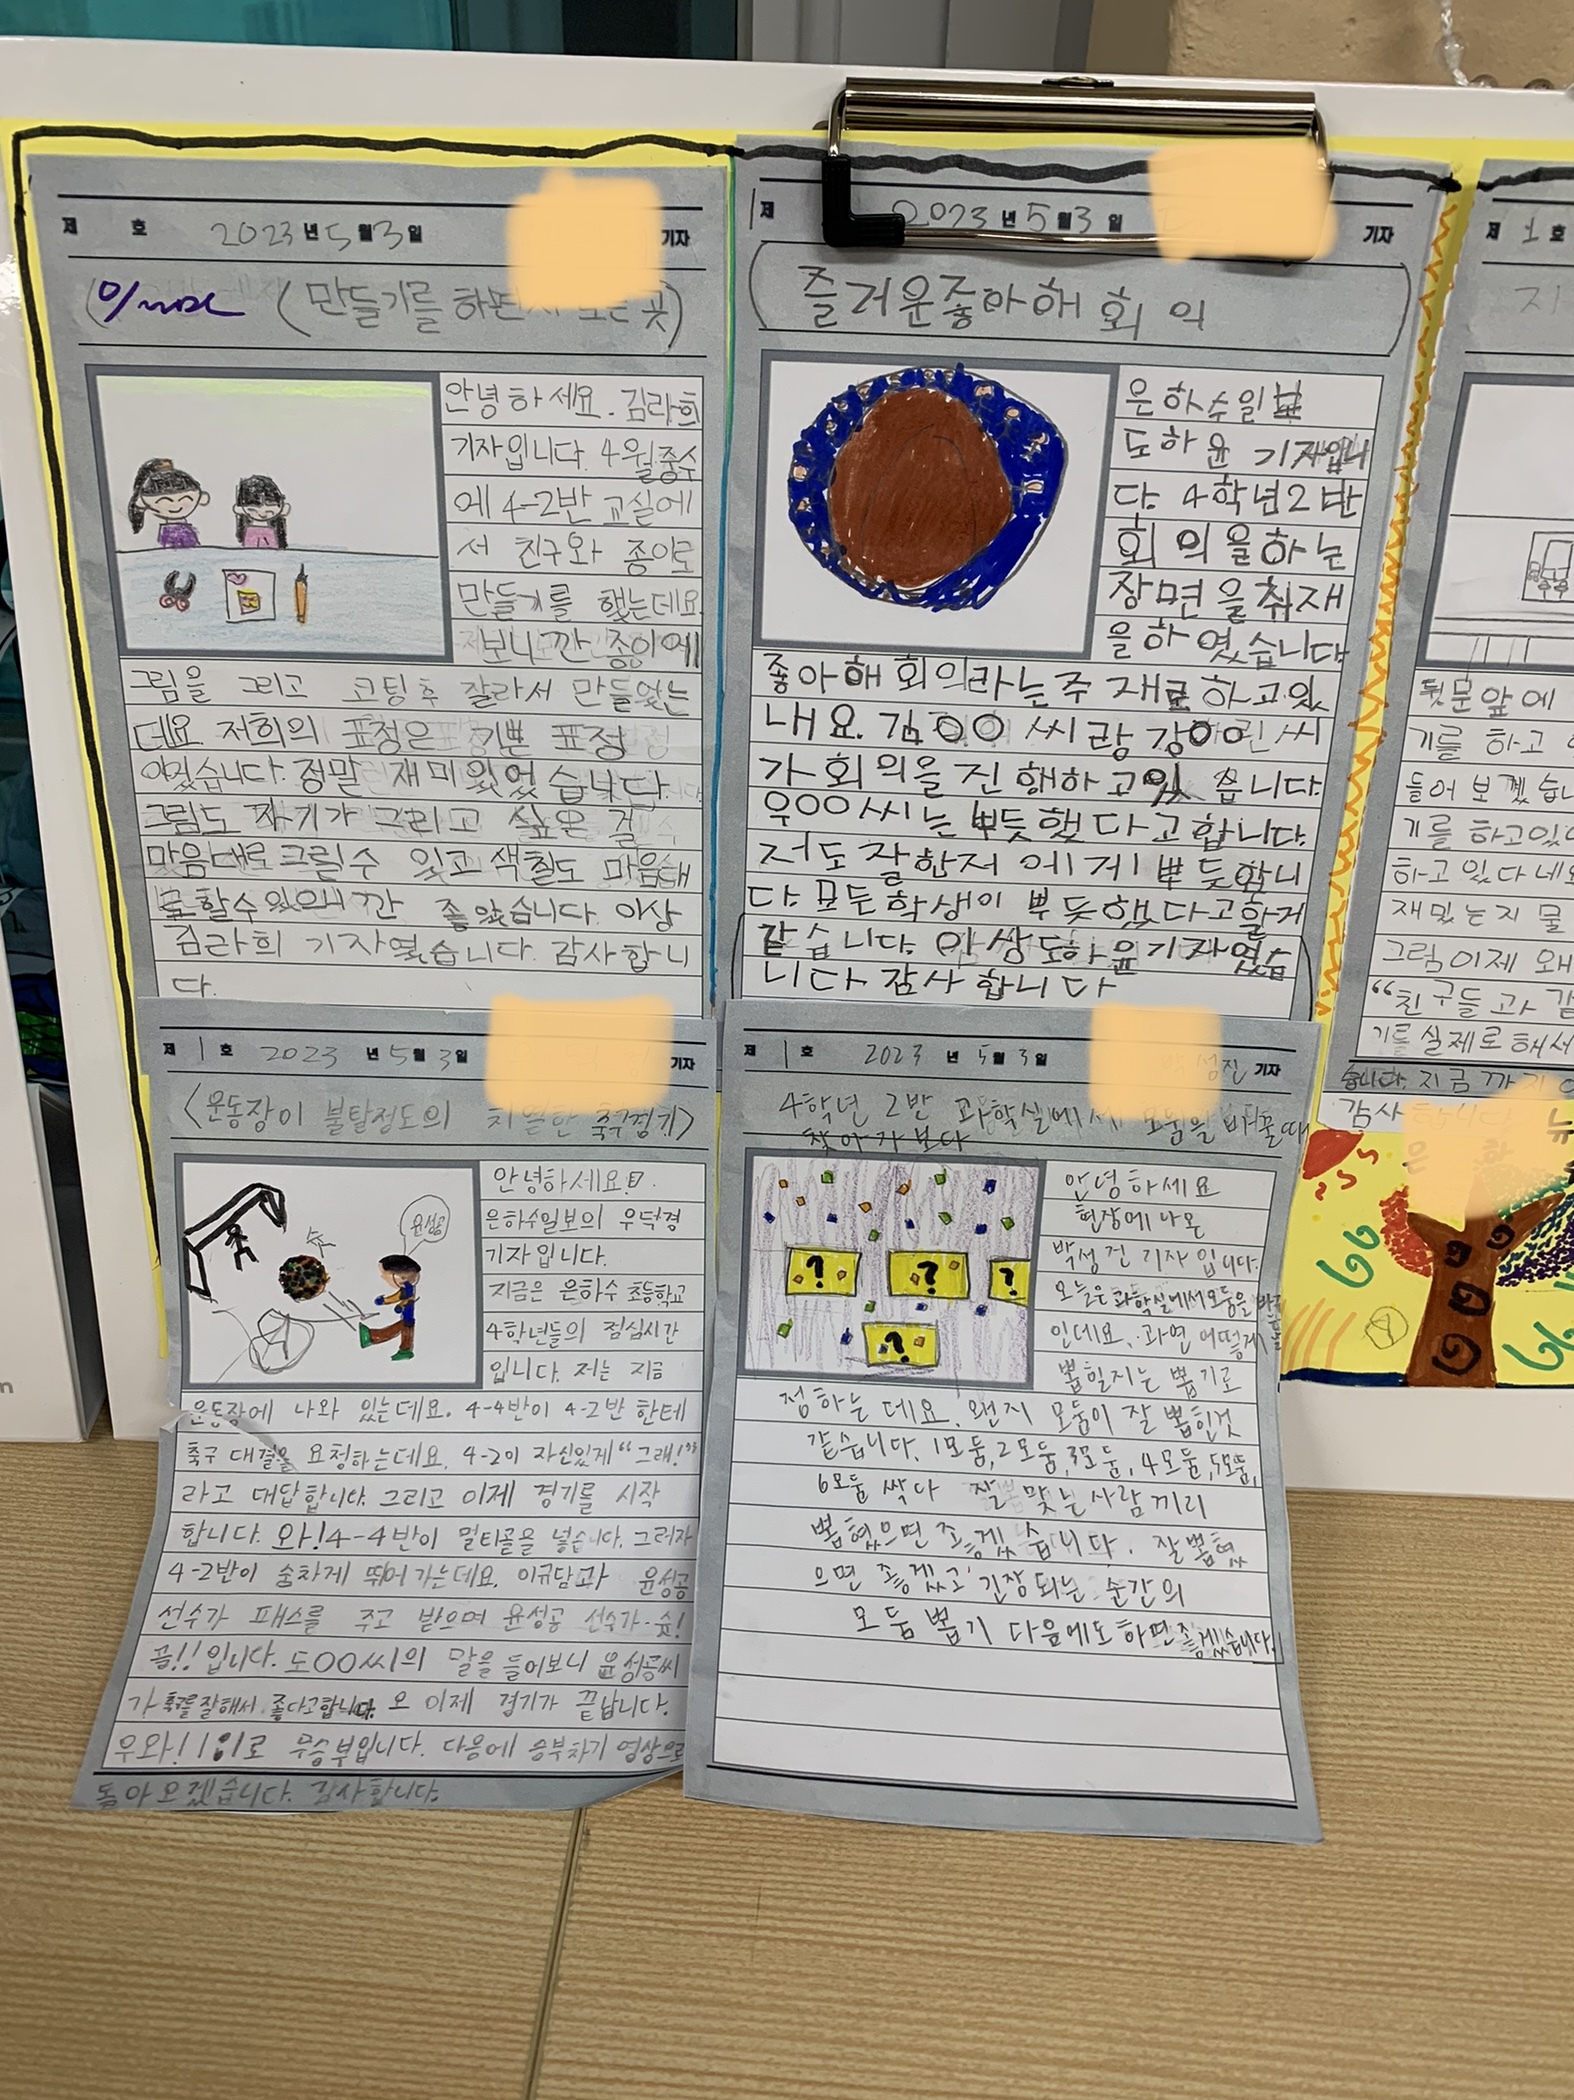 제 호 2023년 5월 3일 기자
(만들기를 하면서 곳)
안녕하세요. 김라희
기자입니다. 4월중순
에 4-2반 교실에
서 친구와 종이로
만들기를 했는데요
보니깐 종이에
그림을 그리고 코팅후 잘라서 만들었는
데요. 저희의 표정은 기쁜 표정
이었습니다. 정말 재미있었습니다.
그림도 자기가 그리고 싶은 걸
마음대로 그릴수 있고 색칠도 마음대
로 할수있으니깐 좋았습니다. 이상
김라희 기자였습니다. 감사합니
다.
1 제 2023년 5월 3일 기자
즐거운좋아해 회의
은하수일보
도하윤 기자입니
다. 4학년2반
회의을하는
장면을취재
을하였습니다
좋아해 회의라는주재로하고있
내요. 김○○씨랑 강○○린씨
가 회의을진행하고있습니다.
우○○씨는 뿌듯했다고합니다.
저도 잘한저에게 뿌듯합니
다. 모든학생이 뿌듯했다고할거
같습니다. 이상도하윤기자였습
니다 감사합니다
제 1 호 2023년 5월 3일 기자
<운동장이 불탈정도의 치열한 축구경기>
안녕하세요!
은하수일보의 우덕경
기자입니다.
지금은 은하수 초등학교
4학년들의 점심시간
입니다. 저는 지금
윤성공
슛
운동장에 나와 있는데요. 4-4반이 4-2반 한테
축구 대결을 요청하는데요. 4-2이 자신있게 "그래!"
라고 대답합니다. 그리고 이제 경기를 시작
합니다. 와! 4-4반이 멀티골을 넣습니다. 그러자
4-2반이 숨차게 뛰어가는데요. 이규담과 윤성공
선수가 패스를 주고 받으며 윤성공 선수가 슛!
골!! 입니다. 도○○씨의 말을 들어보니 윤성공씨
가 축구를잘해서 좋다고합니다. 오 이제 경기가 끝납니다.
우와! 1:1로 무승부입니다. 다음에 승부차기 영상으로
돌아오겠습니다. 감사합니다.
제 1 호 2023년 5월 3일 성진 기자
4학년 2반 과학실에서 모둠을 바꿀때
찾아가보다
안녕하세요
현장에나온
박성진 기자입니다.
오늘은 과학실에서모둠을 바꿀
인데요. 과연 어떻게
뽑힐지는 뽑기로
? ? ? ?
정하는데요. 왠지 모둠이 잘 뽑힌것
같습니다. 1모둠, 2모둠, 3모둠, 4모둠, 5모둠,
6모둠 싹다 잘 맞는사람끼리
뽑혔으면 좋겠습니다. 잘뽑혔
으면 좋겠고 긴장되는 순간의
모둠뽑기 다음에도하면좋겠습니다.
제 1 호
지
뒷문앞에
기를 하고
들어 보겠습니
기를 하고있
하고 있다 네요
재밌는지 물
그럼이제 왜
"친구들과 같
기를 실제로 해서
습니다. 지금까지
감사합니다
은 하